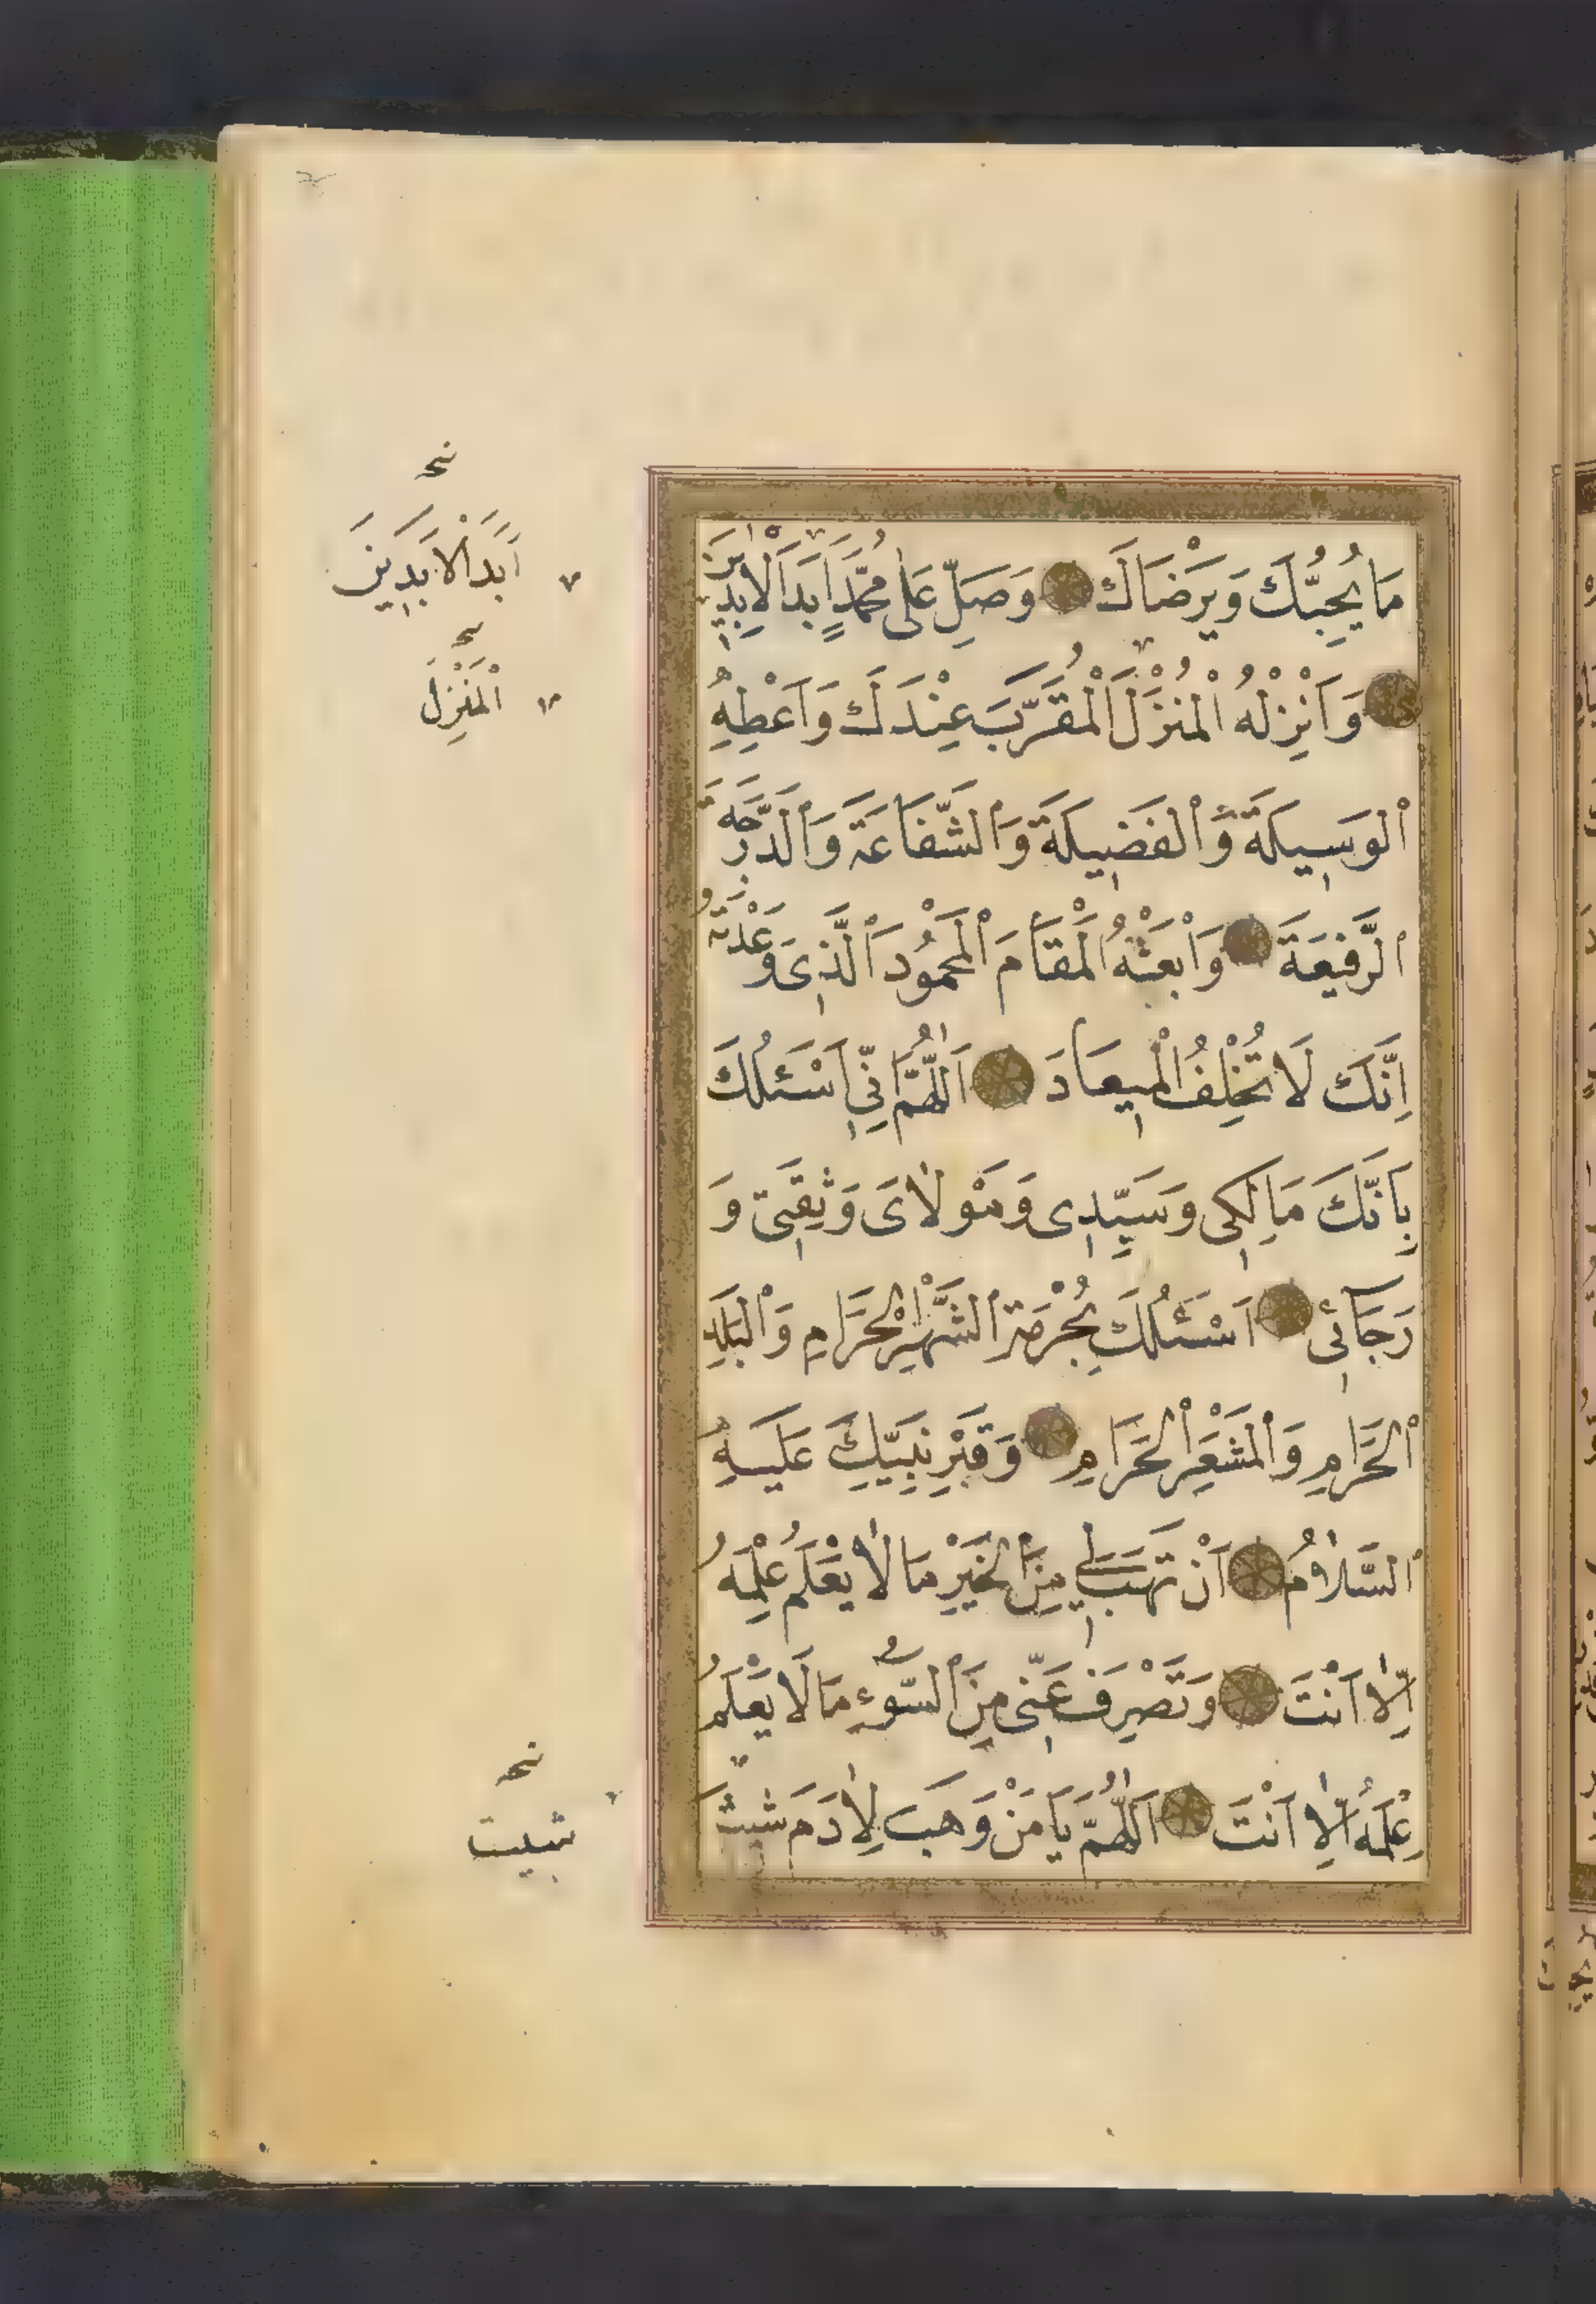 مَا يُحِبُّكَ وَيَرْضَاكَ وَصَلِّ عَلٰى مُحَمَّدٍ اَبَدَ الْاٰبِدِينَ
وَاَنْزِلْهُ الْمُنْزَلَ الْمُقَرَّبَ عِنْدَكَ وَاَعْطِهِ
الْوَسِيلَةَ وَالْفَضِيلَةَ وَالشَّفَاعَةَ وَالدَّرَجَةَ
الرَّفِيعَةَ وَابْعَثْهُ الْمَقَامَ الْمَحْمُودَ الَّذِى وَعَدْتَهُ
اِنَّكَ لَا تُخْلِفُ الْمِيعَادَ اَللّٰهُمَّ اِنِّى اَسْئَلُكَ
بِاَنَّكَ مَالِكِى وَسَيِّدِى وَمَوْلَاىَ وَثِقَتِى وَ
رَجَائِى اَسْئَلُكَ بِحُرْمَةِ الشَّهْرِ الْحَرَامِ وَالْبَلَدِ
الْحَرَامِ وَالْمَشْعَرِ الْحَرَامِ وَقَبْرِ نَبِيِّكَ عَلَيْهِ
السَّلَامُ اَنْ تَهَبَ لِى مِنَ الْخَيْرِ مَا لَا يَعْلَمُ عِلْمَهُ
اِلَّا اَنْتَ وَتَصْرِفَ عَنِّى مِنَ السُّوءِ مَا لَا يَعْلَمُ
عِلْمَهُ اِلَّا اَنْتَ اَللّٰهُمَّ يَا مَنْ وَهَبَ لِاٰدَمَ شِيثَ
اَبَدَ الْاَبَدِينَ
الْمَنْزِلَ